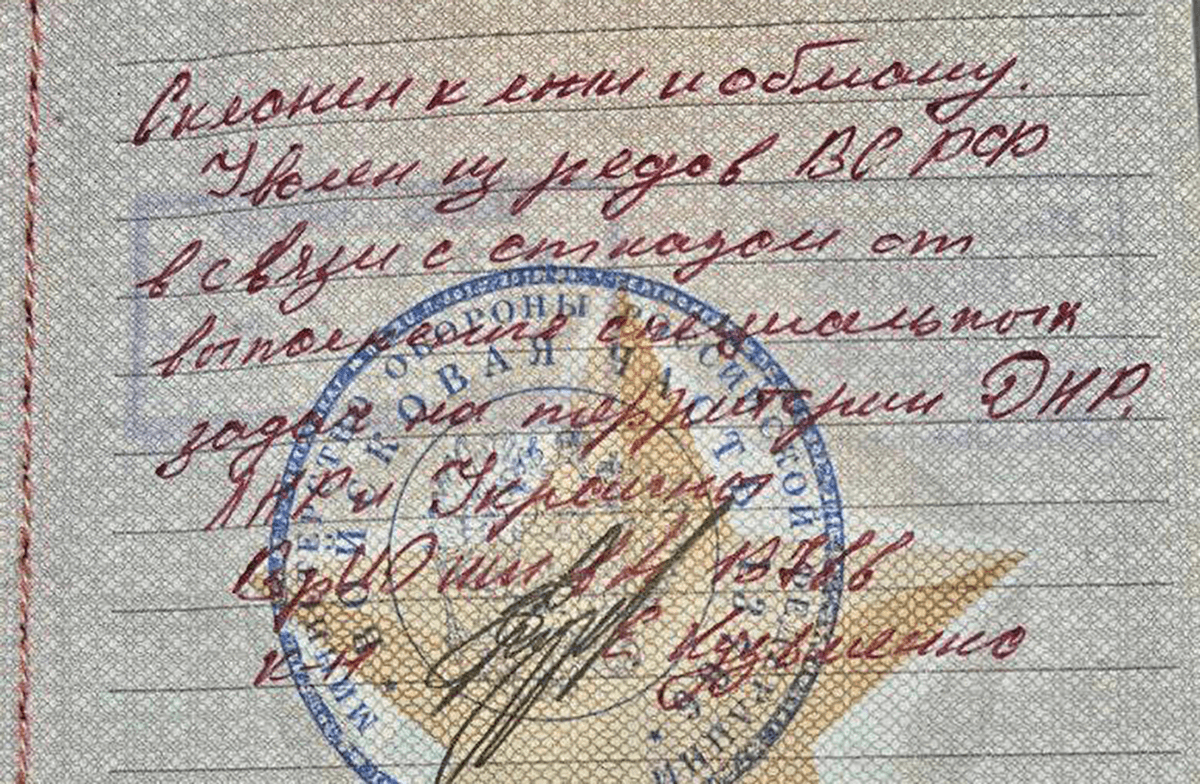 Склонен к лжи и обману.
Уволен из рядов ВС РФ
в связи с отказом от
выполнения специальных
задач на территории ДНР,
ЛНР и Украины
ВрИО
к-н Е Кузьменко
МИНИСТЕРСТВО ОБОРОНЫ РОССИЙСКОЙ ФЕДЕРАЦИИ
ВОЙСКОВАЯ ЧАСТЬ